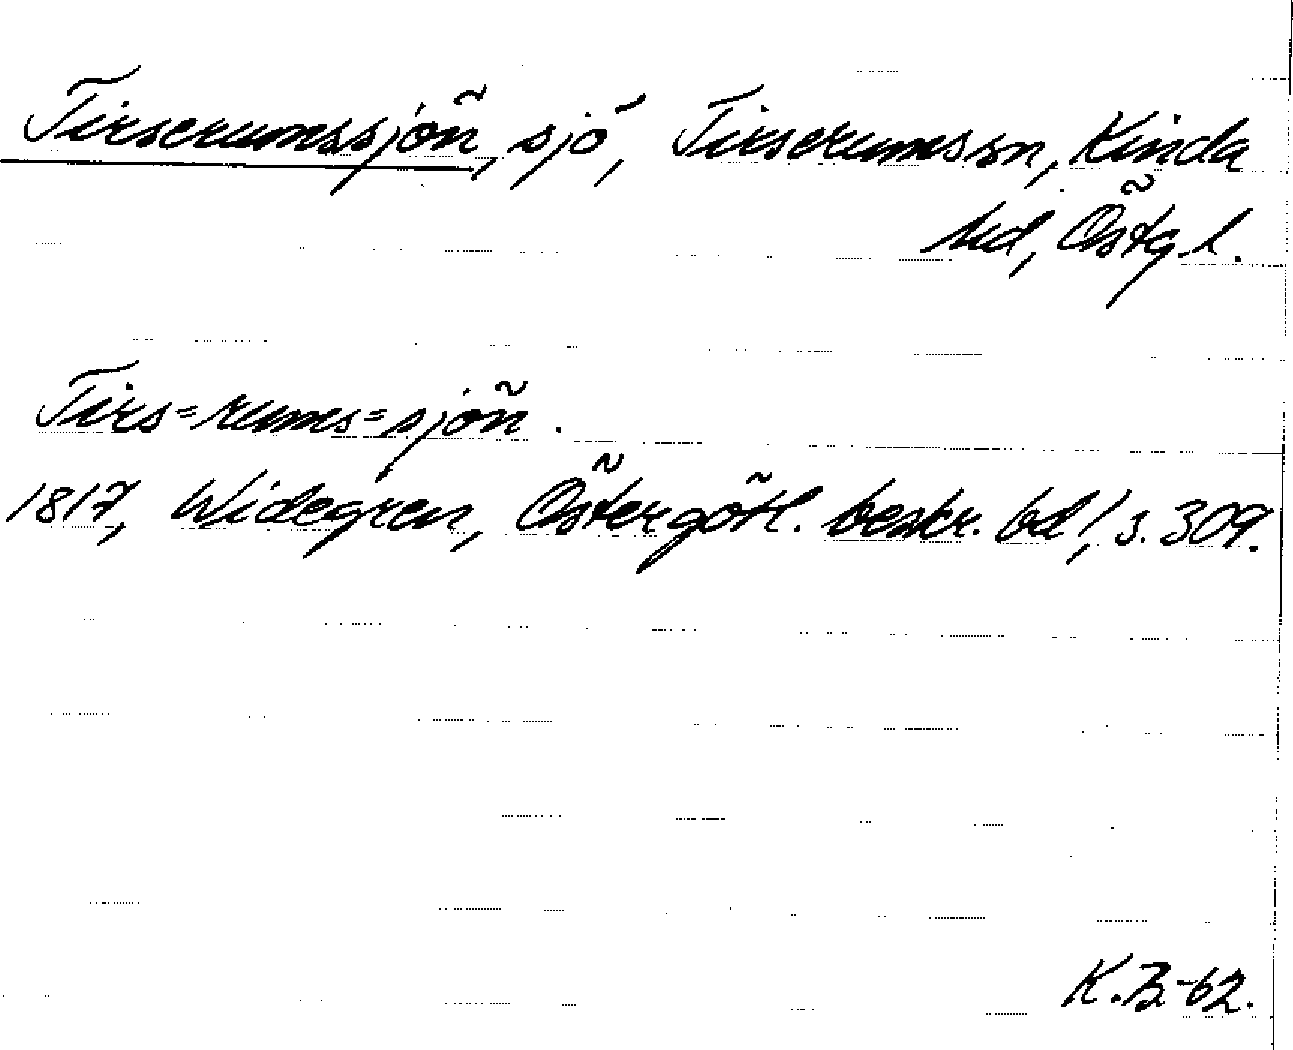 Tirserumssjön, sjö, Tirserums sn, Kinda
hd, Östg. l.
Tirs=rums=sjön.
1817, Widegren, Östergötl. beskr. bd 1, s. 309.
K.B.-62.